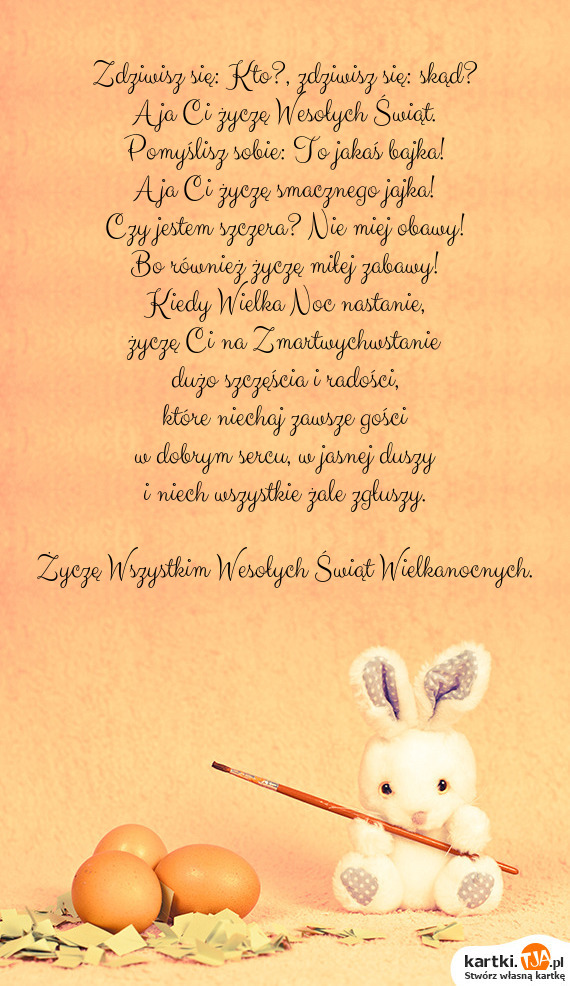 Zdziwisz się: Kto?, zdziwisz się: skąd?
A ja Ci życzę Wesołych Świąt.
Pomyślisz sobie: To jakaś bajka!
A ja Ci życzę smacznego jajka!
Czy jestem szczera? Nie miej obawy!
Bo również życzę miłej zabawy!
Kiedy Wielka Noc nastanie,
życzę Ci na Zmartwychwstanie
dużo szczęścia i radości,
które niechaj zawsze gości
w dobrym sercu, w jasnej duszy
i niech wszystkie żale zgłuszy.
Życzę Wszystkim Wesołych Świąt Wielkanocnych.
kartki.TJA.pl
Stwórz własną kartkę